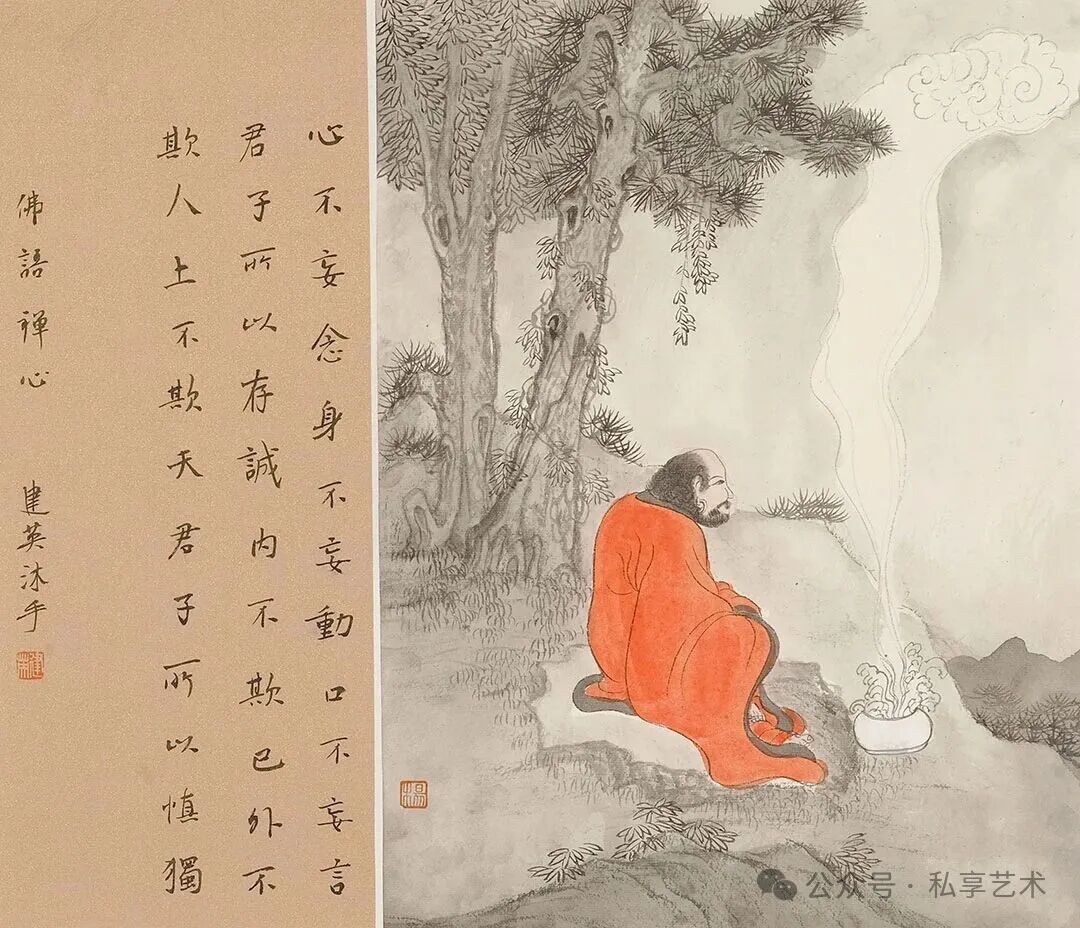 心不妄念身不妄動口不妄言
君子所以存誠内不欺已外不
欺人上不欺天君子所以慎獨
佛語禪心 建英沐手
楊
公众号 · 私享艺术